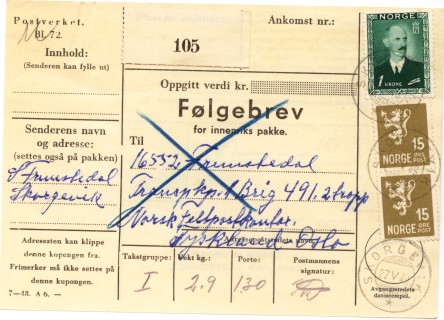 Postverket.
Bl. 72.
Innhold:
(Senderen kan fylle ut)
Ankomst nr.:
105
NORGE
1 KRONE
Oppgitt verdi kr.
Følgebrev
for innenriks pakke.
Senderens navn
og adresse:
(settes også på pakken)
Til
16552 Frumstedal
Transp.kp. 1 Brig 491. 2 tropp
Norsk Feltpostkontor
Tyskland Oslo
S Frumstedal
Skorgevik
15
NORGE
POST
15
NORGE
POST
Adressaten kan klippe
denne kupongen fra.
Frimerker må ikke settes på
denne kupongen.
7—43. A 6. —
Takstgruppe:
Vekt kg.
Porto:
Postmannens
signatur:
I
2.9
130
Avgangsstedets
datostempel.